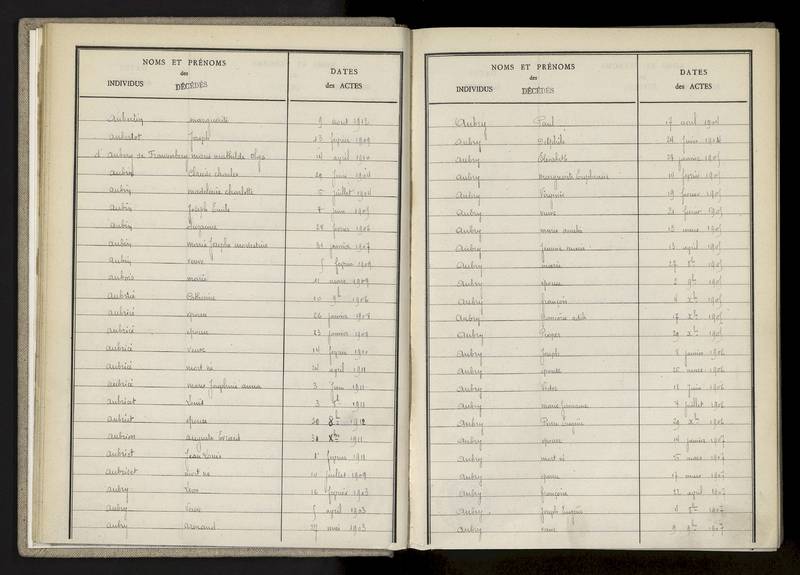 NOMS ET PRÉNOMS
des
INDIVIDUS DÉCÉDÉS
DATES
des ACTES
Aubertin marguerite 9 aout 1912
aubertot Joseph 23 février 1909
d' aubery de Frawenberg marie mathilde Olga 14 avril 1910
aubin Claude charles 29 Juin 1904
aubin madeleine charlotte 5 juillet 1904
aubin Joseph Emile 7 juin 1905
aubin Suzanne 28 février 1906
aubin marie Josephe 31 janvier 1907
aubin veuve 5 février 1909
aubois marie 11 mars 1909
aubrié Catherine 10 9bre 1906
aubrié épouse 26 janvier 1908
aubrié épouse 23 janvier 1909
aubrié veuve 14 février 1910
aubrié mort né 24 avril 1911
aubrié marie Joséphine anna 3 Juin 1911
aubriot Louis 1911
aubriot épouse 30 8bre 1912
aubrion auguste 31 Xbre 1911
aubriot Jean Louis février 1911
aubriot mort né 10 juillet 1909
aubry Léon 16 février 1903
aubry veuve 5 avril 1903
aubry armand 27 mai 1903
NOMS ET PRÉNOMS
des
INDIVIDUS DÉCÉDÉS
DATES
des ACTES
Aubry Paul 17 avril 1904
Aubry Delphile 24 Juin 1904
Aubry Elisabeth 27 janvier 1905
Aubry marguerite Euphrasie 14 février 1905
Aubry Virginie 19 février 1905
Aubry veuve 21 février 1905
Aubry marie amélie 12 mars 1905
Aubry 13 avril 1905
Aubry marie 27 8bre 1905
Aubry épouse 2 9bre 1905
Aubry françois 4 Xbre 1905
Aubry 17 Xbre 1905
Aubry Prosper 29 Xbre 1905
Aubry Joseph 8 janvier 1906
Aubry épouse 25 mars 1906
Aubry Victor 18 Juin 1906
Aubry marie Jeanne 4 juillet 1906
Aubry Pierre Eugène 29 Xbre 1906
Aubry épouse 14 janvier 1907
Aubry mort né 15 mars 1907
Aubry épouse 17 mars 1907
Aubry françoise 22 avril 1907
Aubry Joseph Eugène 1907
Aubry veuve 9 9bre 1907